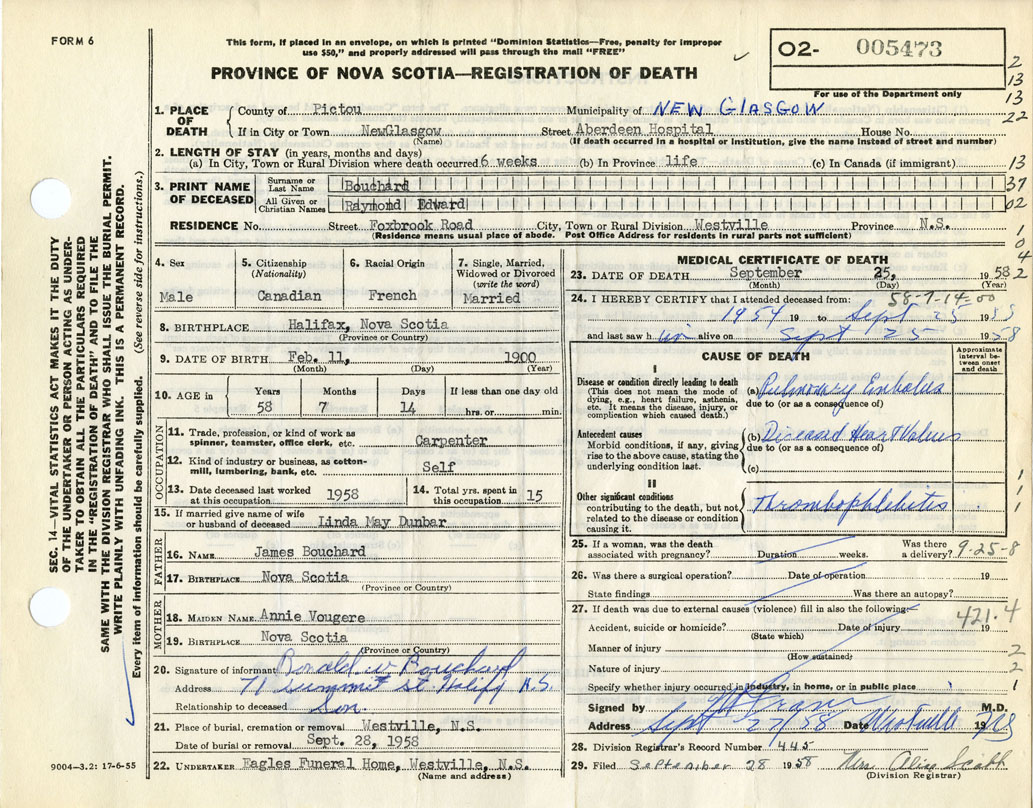 FORM 6
This form, if placed in an envelope, on which is printed "Dominion Statistics—Free, penalty for improper
use $50," and properly addressed will pass through the mail "FREE"
PROVINCE OF NOVA SCOTIA—REGISTRATION OF DEATH
02- 005473
For use of the Department only
2
13
13
22
13
37
02
1
0
4
2
1. PLACE OF DEATH
County of Pictou Municipality of NEW GLASGOW
If in City or Town NewGlasgow Street Aberdeen Hospital House No.
(Name) (If death occurred in a hospital or institution, give the name instead of street and number)
2. LENGTH OF STAY (in years, months and days)
(a) In City, Town or Rural Division where death occurred 6 weeks (b) In Province life (c) In Canada (if immigrant)
3. PRINT NAME OF DECEASED
Surname or Last Name Bouchard
All Given or Christian Names Raymond Edward
RESIDENCE No. Street Foxbrook Road City, Town or Rural Division Westville Province N.S.
(Residence means usual place of abode. Post Office Address for residents in rural parts not sufficient)
SEC. 14—VITAL STATISTICS ACT MAKES IT THE DUTY
OF THE UNDERTAKER OR PERSON ACTING AS UNDER-
TAKER TO OBTAIN ALL THE PARTICULARS REQUIRED
IN THE "REGISTRATION OF DEATH" AND TO FILE THE
SAME WITH THE DIVISION REGISTRAR WHO SHALL ISSUE THE BURIAL PERMIT.
WRITE PLAINLY WITH UNFADING INK. THIS IS A PERMANENT RECORD.
Every item of information should be carefully supplied. (See reverse side for instructions.)
4. Sex
Male
5. Citizenship
(Nationality)
Canadian
6. Racial Origin
French
7. Single, Married,
Widowed or Divorced
(write the word)
Married
8. BIRTHPLACE Halifax, Nova Scotia
(Province or Country)
9. DATE OF BIRTH Feb. 11, 1900
(Month) (Day) (Year)
10. AGE in
Years Months Days If less than one day old
58 7 14 hrs. or min.
OCCUPATION
11. Trade, profession, or kind of work as
spinner, teamster, office clerk, etc. Carpenter
12. Kind of industry or business, as cotton-
mill, lumbering, bank, etc. Self
13. Date deceased last worked
at this occupation 1958
14. Total yrs. spent in
this occupation 15
15. If married give name of wife
or husband of deceased Linda May Dunbar
FATHER
16. NAME James Bouchard
17. BIRTHPLACE Nova Scotia
(Province or Country)
MOTHER
18. MAIDEN NAME Annie Vougere
19. BIRTHPLACE Nova Scotia
(Province or Country)
20. Signature of informant Ronald W Bouchard
Address 71 Summit St. Halifx N.S.
Relationship to deceased Son.
21. Place of burial, cremation or removal Westville, N.S.
Date of burial or removal Sept. 28, 1958
22. UNDERTAKER Eagles Funeral Home, Westville, N.S.
(Name and address)
9004—3.2: 17-6-55
MEDICAL CERTIFICATE OF DEATH
23. DATE OF DEATH September 25, 1958
(Month) (Day) (Year)
24. I HEREBY CERTIFY that I attended deceased from: 58-7-14-00
1954 19 to Sept 25 19
and last saw h im alive on Sept 25 1958
CAUSE OF DEATH
Approximate
interval be-
tween onset
and death
I
Disease or condition directly leading to death
(This does not mean the mode of
dying, e.g., heart failure, asthenia,
etc. It means the disease, injury, or
complication which caused death.)
(a) Pulmonary Embolus
due to (or as a consequence of)
Antecedent causes
Morbid conditions, if any, giving
rise to the above cause, stating the
underlying condition last.
(b) Diseased Heart Valves
due to (or as a consequence of)
(c)
II
Other significant conditions
contributing to the death, but not
related to the disease or condition
causing it.
Thrombophlebitis
1
1
1
25. If a woman, was the death
associated with pregnancy? Duration weeks. Was there
a delivery? 9-25-8
26. Was there a surgical operation? Date of operation 19
State findings Was there an autopsy?
27. If death was due to external causes (violence) fill in also the following:
421.4
Accident, suicide or homicide? Date of injury 19
(State which)
Manner of injury 2
(How sustained)
Nature of injury 2
Specify whether injury occurred in industry, in home, or in public place 1
Signed by M.D.
Address Sept 27/58 Date 19
28. Division Registrar's Record Number 1445
29. Filed September 28 1958 Mrs. Alice
(Division Registrar)